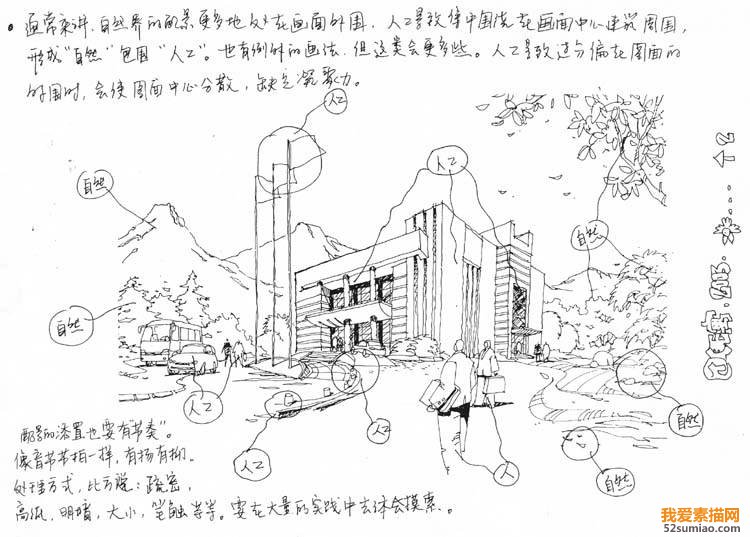 通常来讲,自然界的配景更多地处在画面的外围,人工景致集中围绕在画面中心建筑周围,
形成“自然”包围“人工”。也有例外的画法,但这类会更多些。人工景致过分偏在图面的
外围时,会使图面中心分散,缺乏凝聚力。
人工
自然
人工
自然
自然
人工
人工
人
自然
自然
配景的添置也要有节奏。
像音节节拍一样,有扬有抑。
处理方式,比方说:疏密,
高低,明暗,大小,笔触等等。要在大量的实践中去体会摸索.
2003.
我爱素描网
52sumiao.com